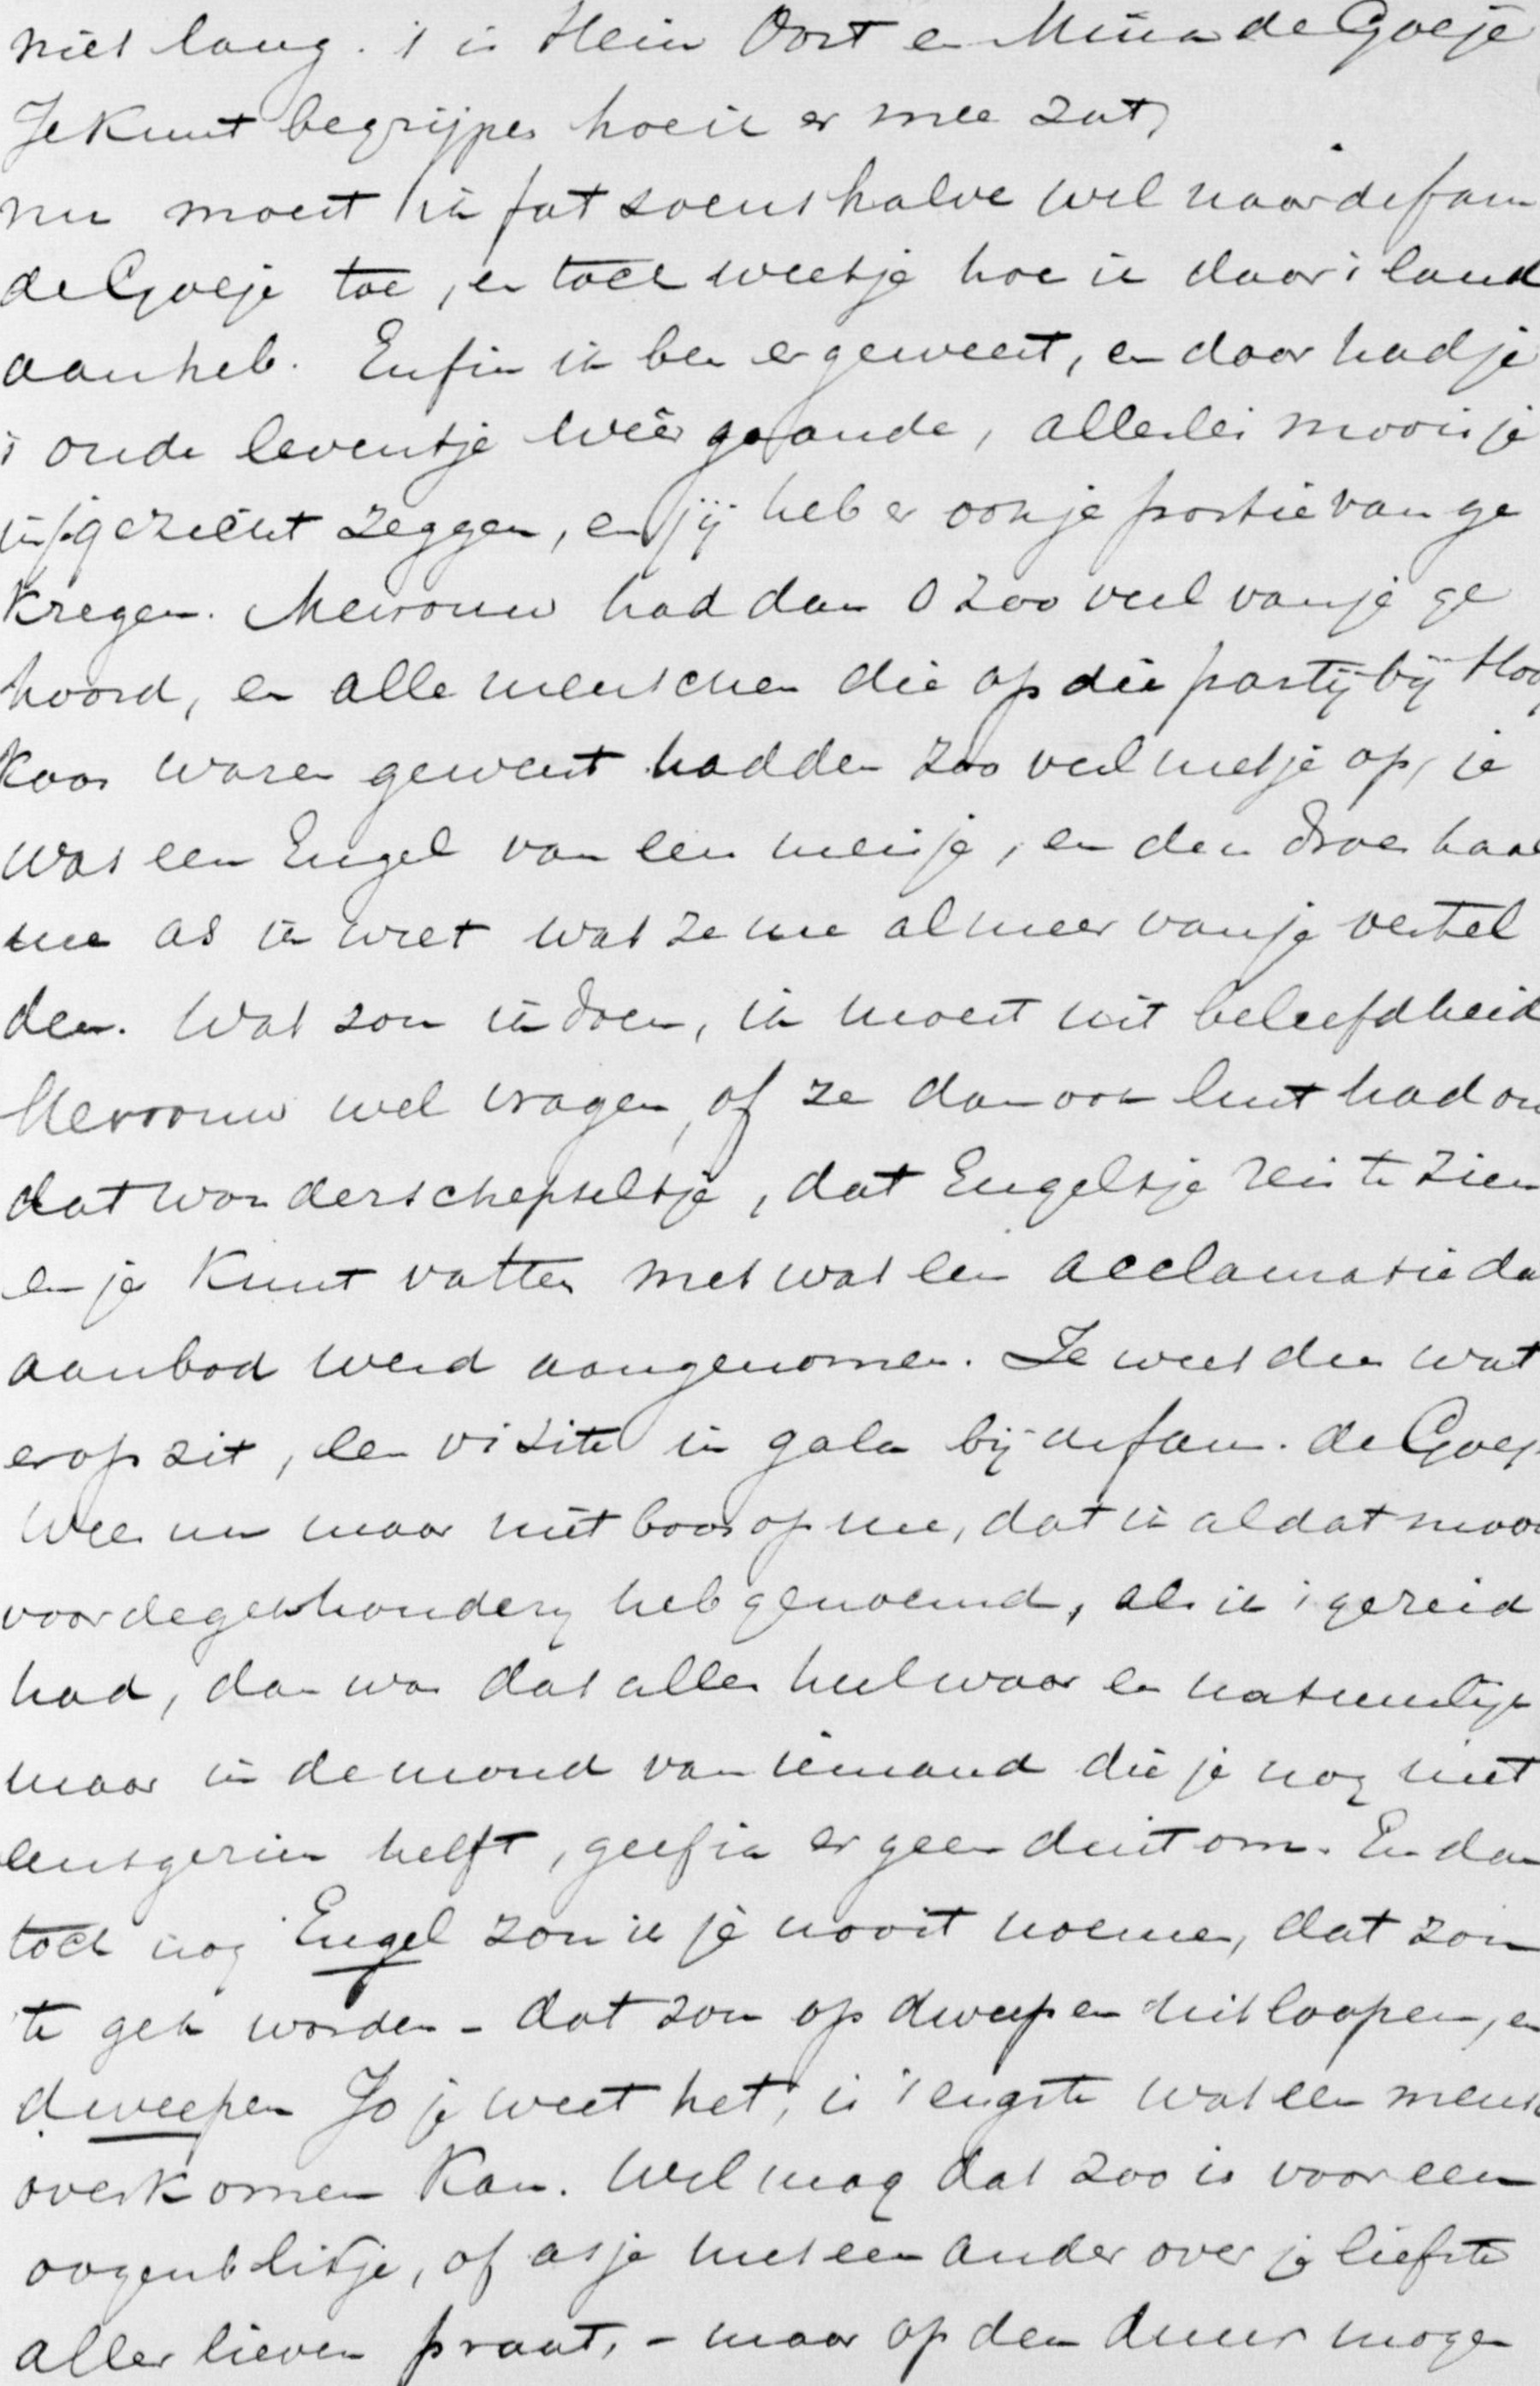 niet lang. 't is Hein Oort en Mina de Goeje
Je kunt begrijpen hoe ik er mee zat,
nu moest ik fatsoenshalve wel naar de fam
de Goeje toe, en toch weetje hoe ik daar 't land
aan heb. Enfin ik ben er geweest, en daar hadje
't oude leventje weêr gaande, allerlei moois je
in je gezicht zeggen, en jij heb er ook je portie van ge
kregen. Mevrouw had dan o zoo veel van je ge
hoord, en alle menschen die op die partij bij
Koos waren geweest hadden zoo veel met je op, je
was een Engel van een meisje, en den droes haal
me as ik weet wat ze me al meer van je vertel
den. Wat zou ik doen, ik moest uit beleefdheid
Mevrouw wel vragen, of ze dan ook lust had om
dat wonderschepseltje, dat Engeltje reis te zien
en je kunt vatten met wat een acclamatie da
aanbod werd aangenomen. Je weet dus wat
er op zit, een visite in gala bij de fam. de Goeje
Wees nu maar niet boos op me, dat ik al dat moois
voor de gekhouderij heb genoemd, als ik 't gezeid
had, dan was dat alles heel waar en natuurlijk
maar in de mond van iemand die je nog niet
eens gezien heeft, geef ik er geen duit om. En dan
toch nog Engel zou ik je nooit noemen, dat zou
te gek worden - dat zou op dweepen uitloopen, en
dweepen Jo je weet het, is 't engste wat een mensch
overkomen kan. Wel mag dat zoo is voor een
oogenblikje, of as je met een ander over je liefste
aller lieven praat, - maar op den duur mogen